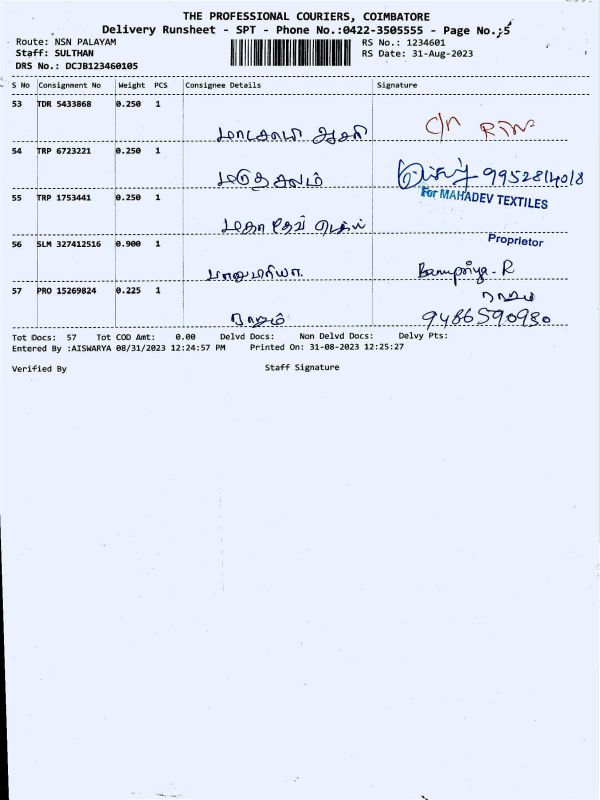 THE PROFESSIONAL COURIERS, COIMBATORE
Delivery Runsheet - SPT - Phone No.:0422-3505555 - Page No.:5
Route: NSN PALAYAM RS No.: 1234601
Staff: SULTHAN RS Date: 31-Aug-2023
DRS No.: DCJB123460105
S No Consignment No Weight PCS Consignee Details Signature
53 TDR 5433868 0.250 1
54 TRP 6723221 0.250 1
மருதசலம் 9952814018
For MAHADEV TEXTILES
55 TRP 1753441 0.250 1
Proprietor
56 SLM 327412516 0.900 1
பானுமரியா Banupriya. R
57 PRO 15269824 0.225 1
ராஜம்
ராஜம் 9486590980
Tot Docs: 57 Tot COD Amt: 0.00 Delvd Docs: Non Delvd Docs: Delvy Pts:
Entered By :AISWARYA 08/31/2023 12:24:57 PM Printed On: 31-08-2023 12:25:27
Verified By Staff Signature